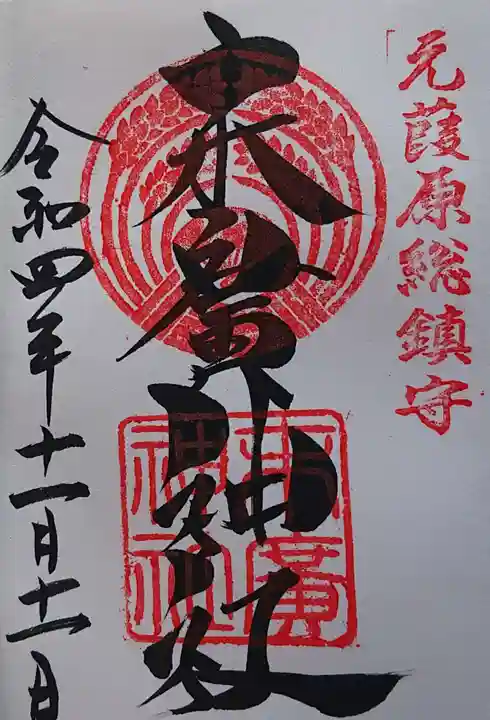 「元葭原総鎮守
末廣神社
末廣神社
令和四年十一月十一日